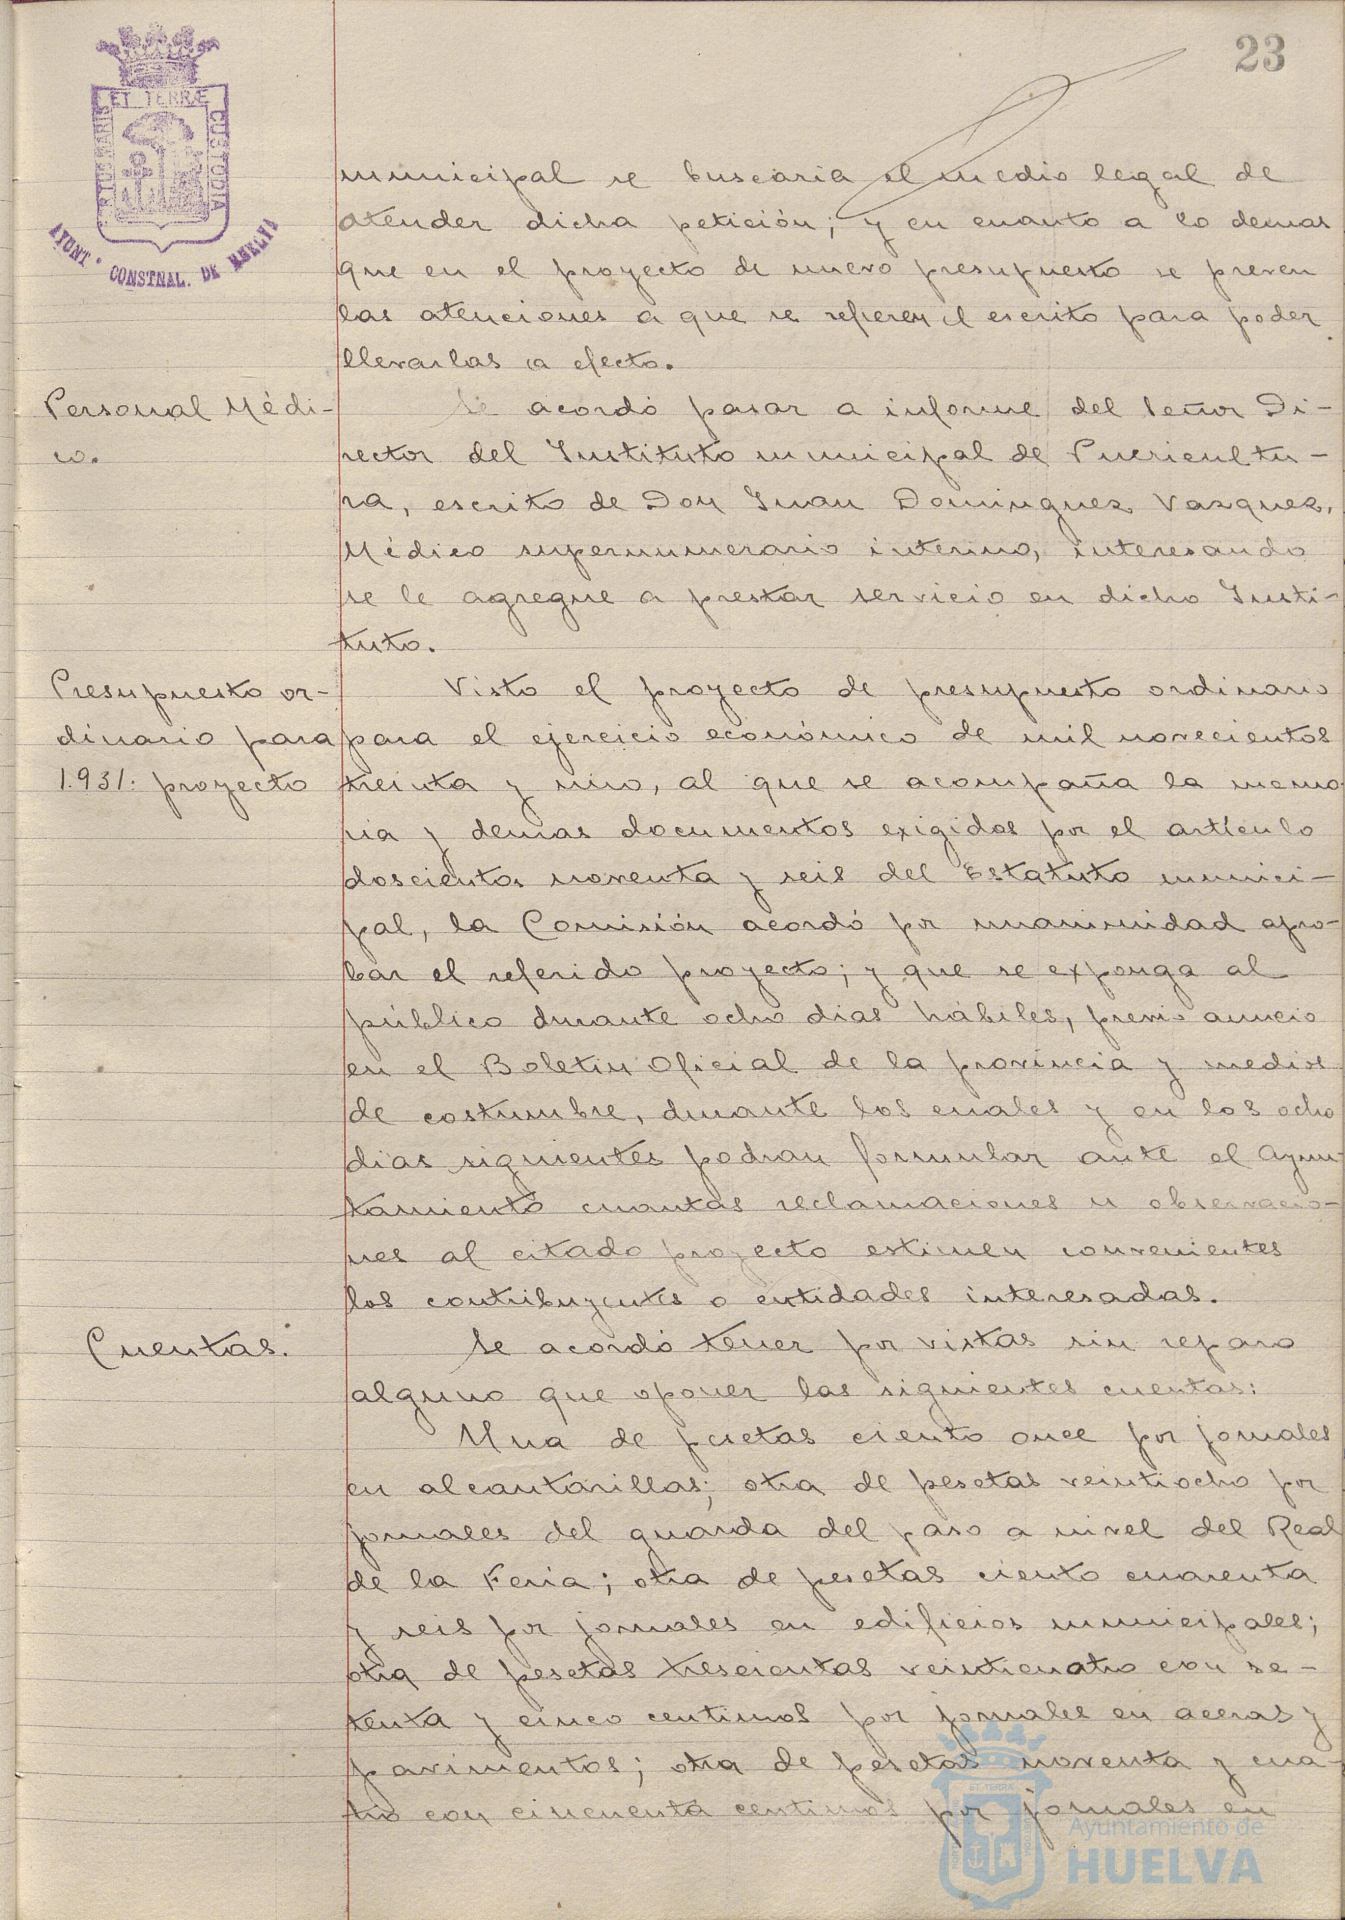 23
ET TERRÆ
CUSTODIA
AYUNT. CONSTNAL. DE HUELVA
municipal se buscaria el medio legal de
atender dicha petición; y en cuanto a lo demas
que en el proyecto de nuevo presupuesto se preven
las atenciones a que se referen el escrito para poder
llevarlas a efecto.
Personal Médi-
co.
Se acordó pasar a informe del Señor Di-
rector del Instituto municipal de Puericultu-
ra, escrito de Don Juan Dominguez Vazquez,
Médico supernumerario interino, interesando
se le agregue a prestar servicio en dicho Insti-
tuto.
Presupuesto or-
dinario para
1.931: proyecto
Visto el proyecto de presupuesto ordinario
para el ejercicio económico de mil novecientos
treinta y uno, al que se acompaña la memo
ria y demas documentos exigidos por el artículo
doscientos noventa y seis del Estatuto munici-
pal, la Comisión acordó por unanimidad apro-
bar el referido proyecto; y que se exponga al
público durante ocho dias hábiles, previo anucio
en el Boletin Oficial de la provincia y medios
de costumbre, durante los cuales y en los ocho
dias siguientes podran formular ante el Ayun-
tamiento cuantas reclamaciones u observacio-
nes al citado proyecto estimen convenientes
los contribuyentes o entidades interesadas.
Cuentas.
Se acordó tener por vistas sin reparo
alguno que oponer las siguientes cuentas:
Una de pesetas ciento once por jornales
en alcantarillas; otra de pesetas veintiocho por
jornales del guarda del paso a nivel del Real
de la Feria; otra de pesetas ciento cuarenta
y seis por jornales en edificios municipales;
otra de pesetas trescientas veinticuatro con se-
tenta y cinco centimos por jornales en aceras y
pavimentos; otra de pesetas noventa y cua-
tro con cincuenta centimos por jornales en
Ayuntamiento de
HUELVA